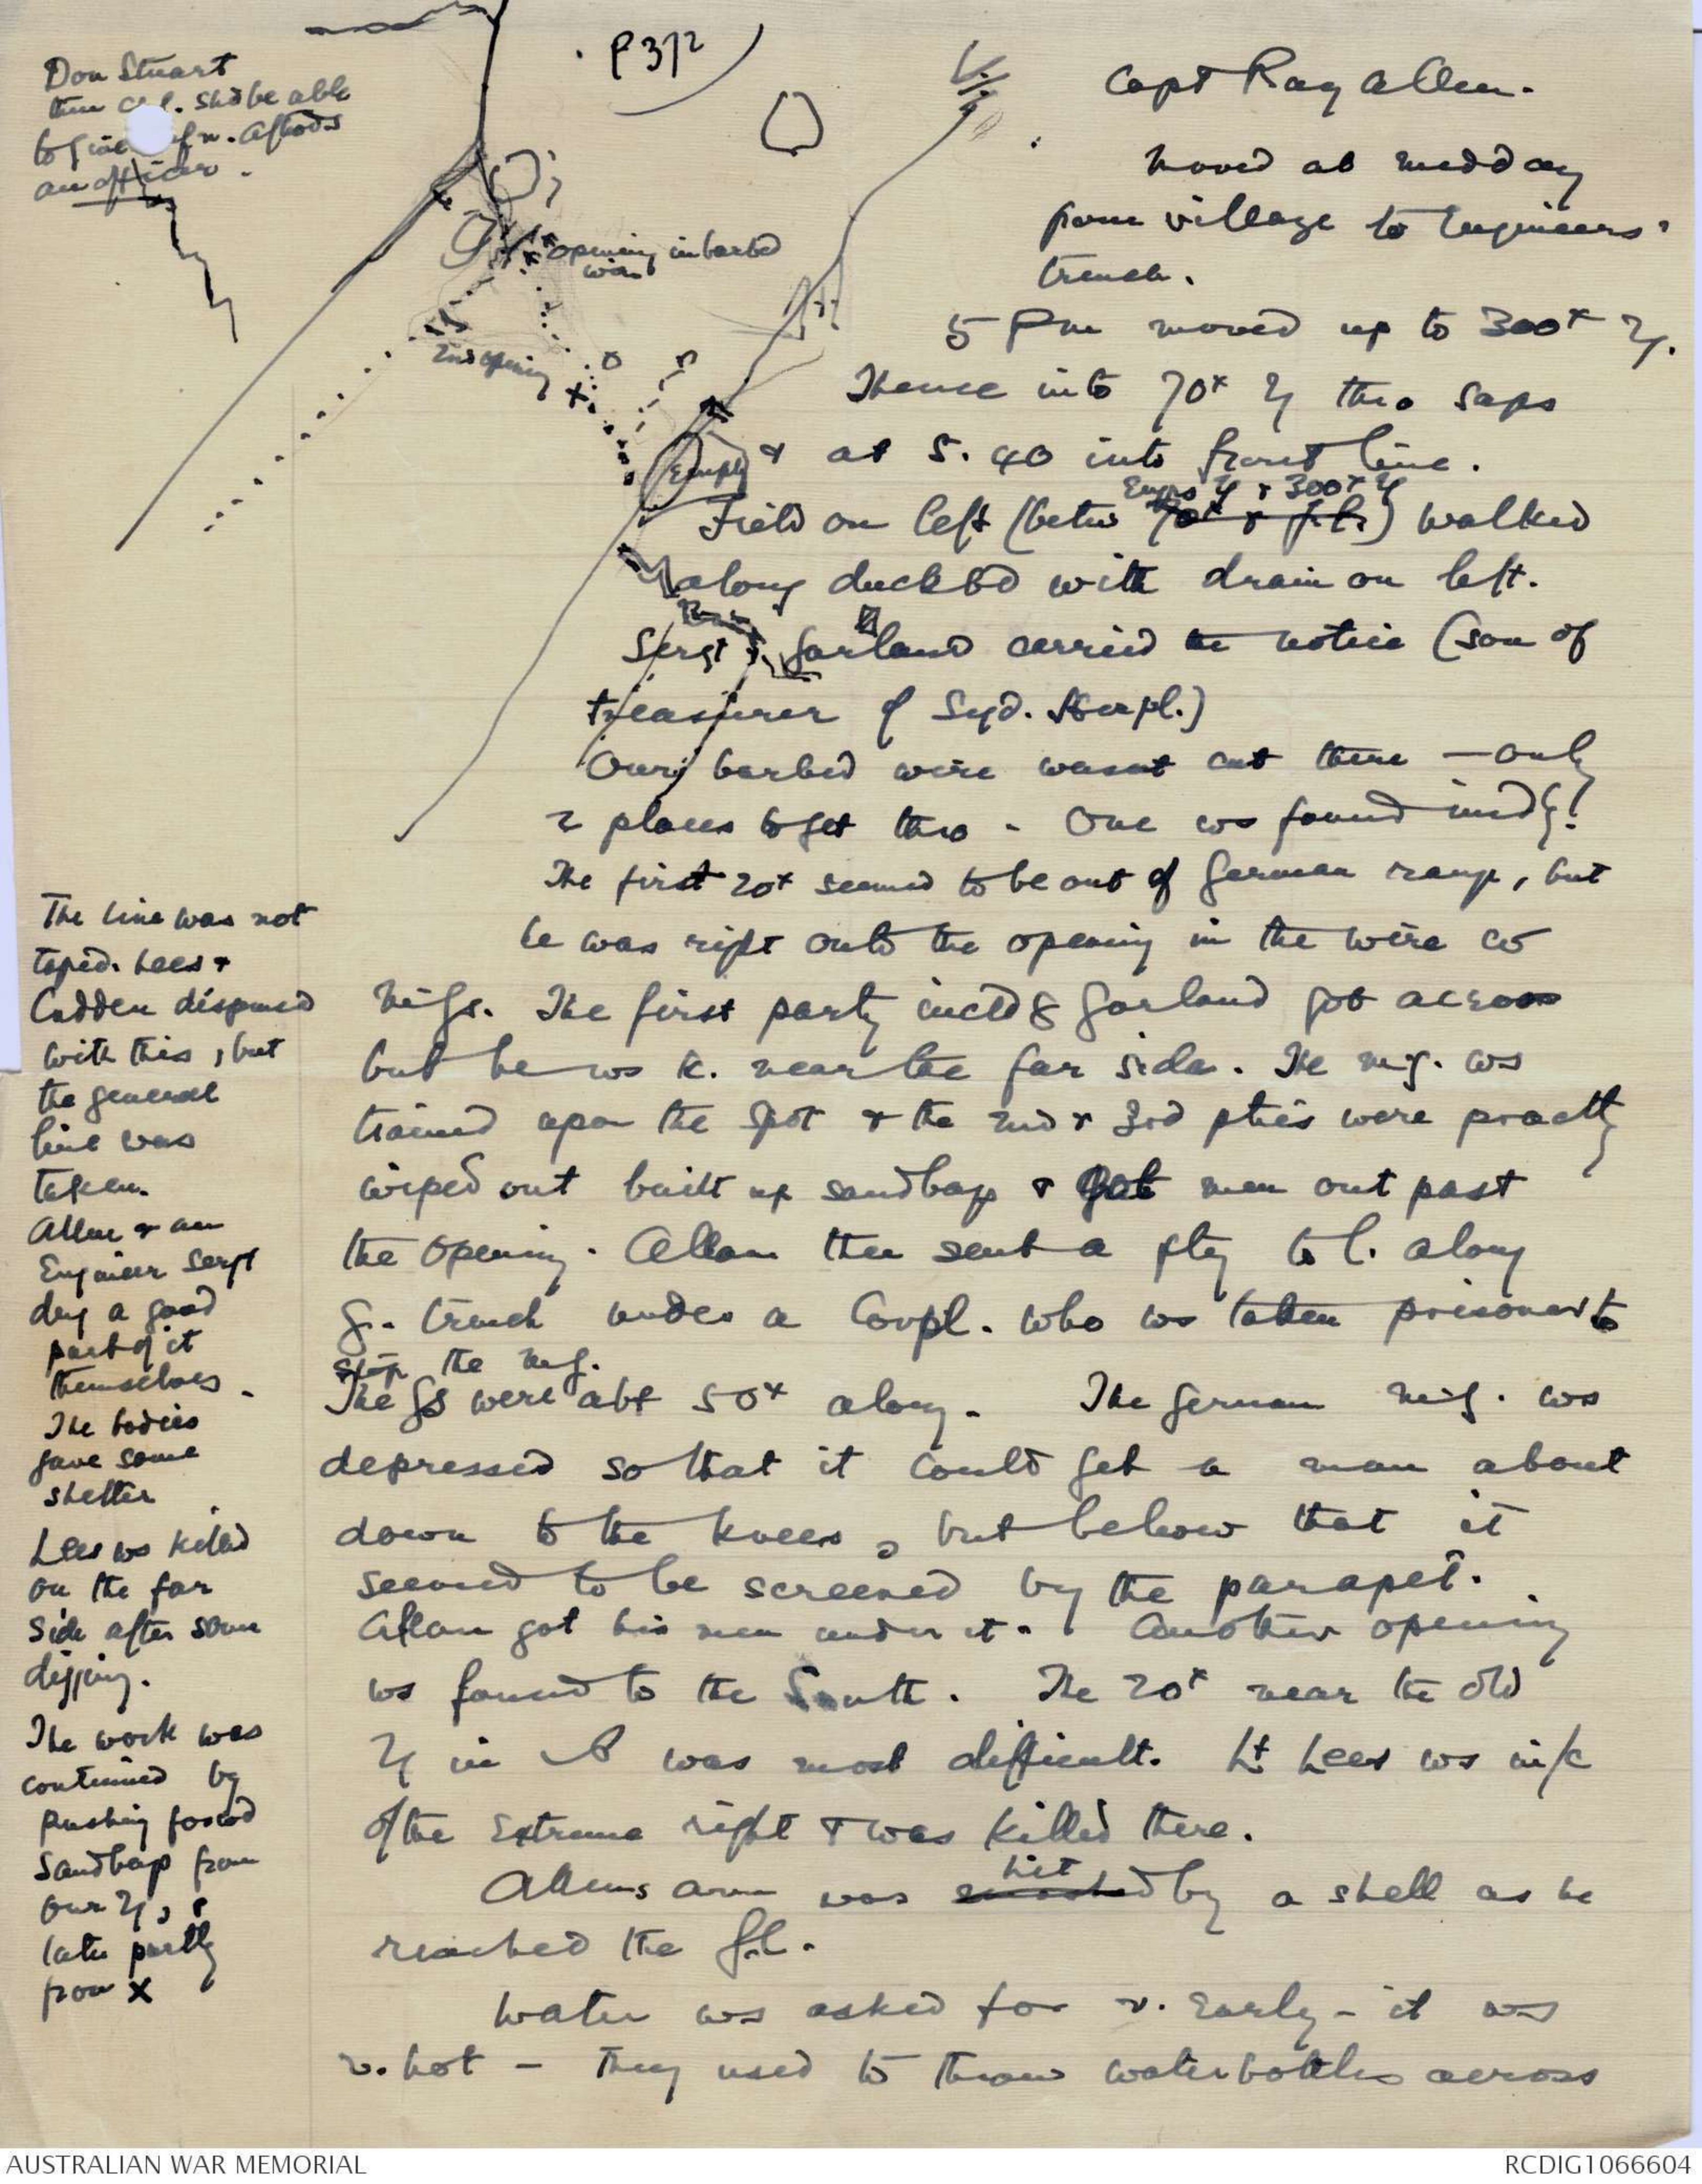 P372
Don Stuart
then Cpl. shd be able
to give . Aftwds
an officer.
Capt Ray Allen.
moved at midday
from village to Engineers'
trench.
opening in barbed
wire
2nd opening
5 pm moved up to 300x
Thence into 70x thro saps
Empty
& at 5.40 into front line.
Engrs & 300x
Field on left (betw 70x & f.l.) walked
along duckbd with drain on left.
Sergt Garland carried the notice (son of
treasurer of Syd. Hospl.)
Our barbed wire wasnt cut there — only
2 places to get thro - One ws found immdy!
The first 20x seemed to be out of German range, but
he was right onto the opening in the wire w
m.gs. The first party incldg Garland got across
but he ws k. near the far side. The m.g. ws
trained upon the spot & the 2nd & 3rd pties were practly
wiped out built up sandbags & got men out past
the opening. Allan then sent a pty to l. along
G. trench under a Corpl. who ws taken prisoner to
stop the m.g.
The Gs were abt 50x along. The German m.g. ws
depressed so that it could get a man about
down to the knees, but below that it
seemed to be screened by the parapet.
Allan got his men under it. Another opening
ws found to the South. The 20x near the old
in was most difficult. Lt Lees ws i/c
of the extreme right & was killed there.
hit
Allens arm was smashed by a shell as he
reached the f.l.
Water ws asked for v. early - it ws
v. hot - They used to throw waterbottles across
The line was not
taped. Lees &
Cadden dispensed
with this, but
the general
line was
taken.
Allen & an
Engineer Sergt
dug a good
part of it
themselves.
The bodies
gave some
shelter
Lees ws killed
on the far
side after some
digging.
The work was
continued by
pushing forwd
sandbags from
our , &
later partly
from X
AUSTRALIAN WAR MEMORIAL
RCDIG1066604